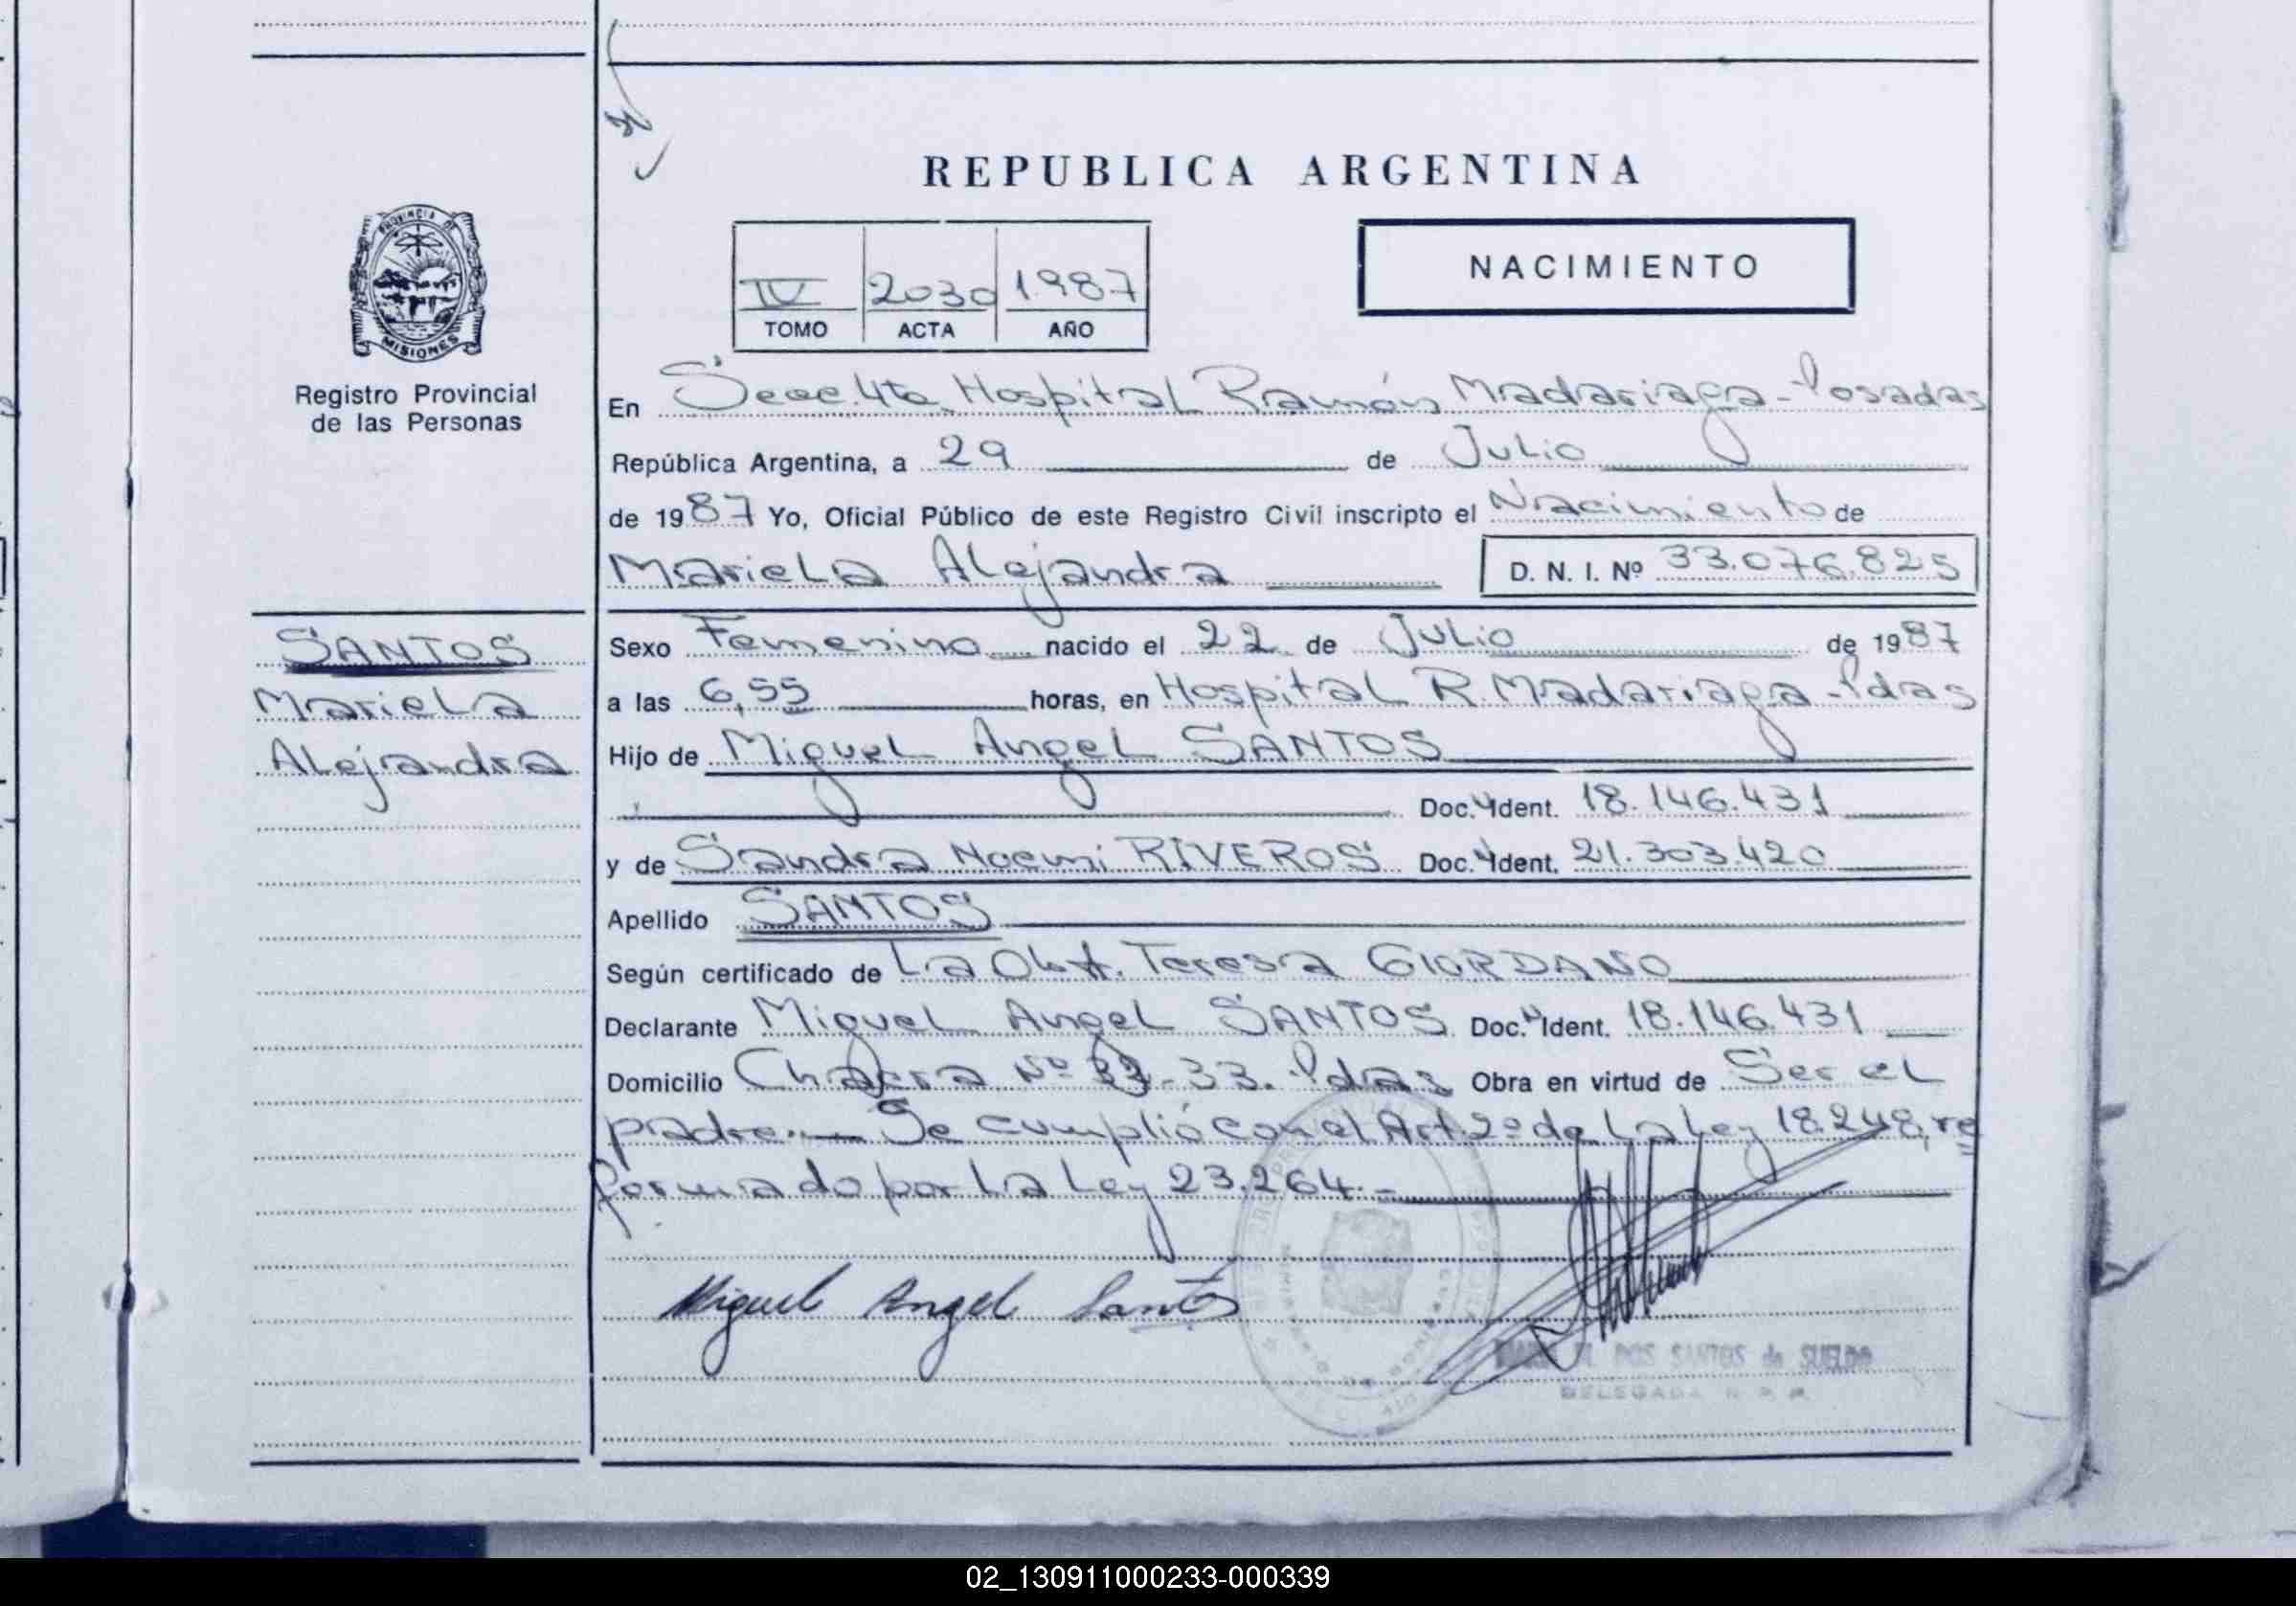 REPUBLICA ARGENTINA
PROVINCIA DE
MISIONES
Registro Provincial
de las Personas
IV 2030 1987
TOMO ACTA AÑO
NACIMIENTO
En Secc. 4ta. Hospital Ramón Madariaga - Posadas
República Argentina, a 29 de Julio
de 1987 Yo, Oficial Público de este Registro Civil inscripto el Nacimiento de
Mariela Alejandra D. N. I. Nº 33.076.825
SANTOS
Mariela
Alejandra
Sexo Femenino nacido el 22 de Julio de 1987
a las 6,55 horas, en Hospital R. Madariaga - Pdas
Hijo de Miguel Angel SANTOS
Doc. Ident. 18.146.431
y de Sandra Noemi RIVEROS Doc. Ident. 21.303.420
Apellido SANTOS
Según certificado de La Obst. Teresa GIORDANO
Declarante Miguel Angel SANTOS Doc. Ident. 18.146.431
Domicilio Chacra Nº 32-33. Pdas Obra en virtud de Ser el
padre.- Se cumplió con el Art. 2º de La Ley 18.248, re
formado por La Ley 23.264.-
Miguel Angel Santos
DOS SANTOS de SUELDO
DELEGADA R. P. P.
02_130911000233-000339